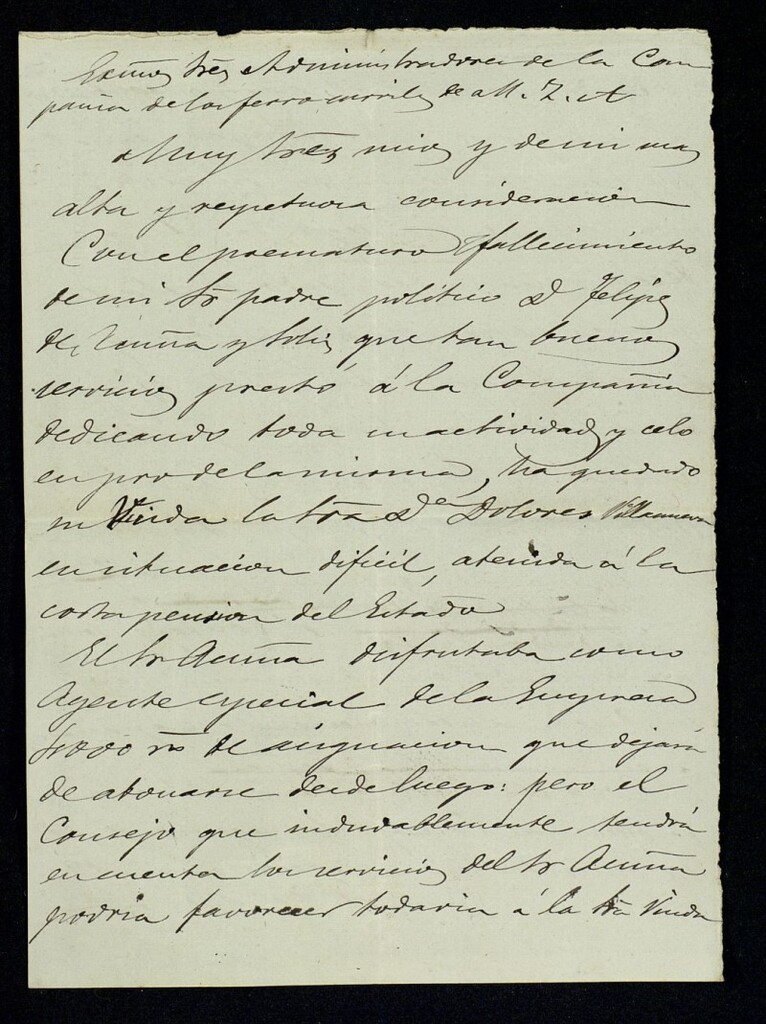 Exmos Sres Administradores de la Com
pañia de los ferro carriles de M. Z. A
Muy Sres mios y de mi mas
alta y respetuosa consideracion
Con el prematuro fallecimiento
de mi Sr padre politico D Felipe
de Acuña y Solis que tan buenos
servicios prestó á la Compañia
dedicando toda su actividad y celo
en pro de la misma, ha quedado
su Viuda la Sra Da Dolores Villanueva
en situacion dificil, atenida á la
corta pension del Estado
El Sr Acuña disfrutaba como
Agente especial de la Empresa
rs de asignacion que dejara
de abonarse desde luego: pero el
Consejo que indudablemente tendrá
en cuenta los servicios del Sr Acuña
podria favorecer todavia á la Sra Viuda